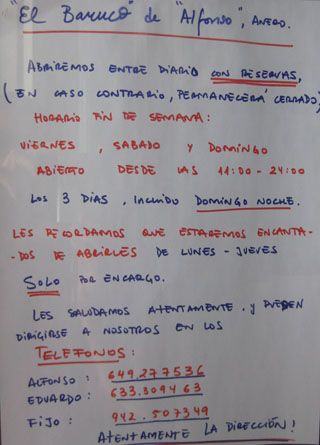 "El Baruco" de "Alfonso", Anero.
ABRIREMOS ENTRE DIARIO CON RESERVAS,
(EN CASO CONTRARIO, PERMANECERÁ CERRADO)
HORARIO FIN DE SEMANA:
VIERNES, SABADO Y DOMINGO
ABIERTO DESDE LAS 11:00 - 24:00
LOS 3 DÍAS, INCLUIDO DOMINGO NOCHE.
LES RECORDAMOS QUE ESTAREMOS ENCANTA-
-DOS DE ABRIRLES DE LUNES - JUEVES
SOLO POR ENCARGO.
LES SALUDAMOS ATENTAMENTE. Y PUEDEN
DIRIGIRSE A NOSOTROS EN LOS
TELEFONOS:
ALFONSO: 649.277536
EDUARDO: 633.309463
FIJO: 942.507349
ATENTAMENTE LA DIRECCIÓN!